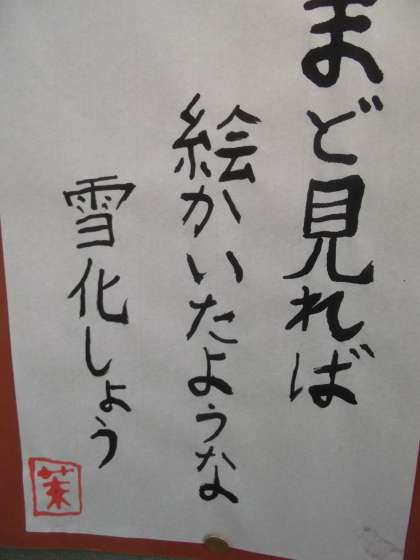 まど見れば
絵かいたような
雪化しょう